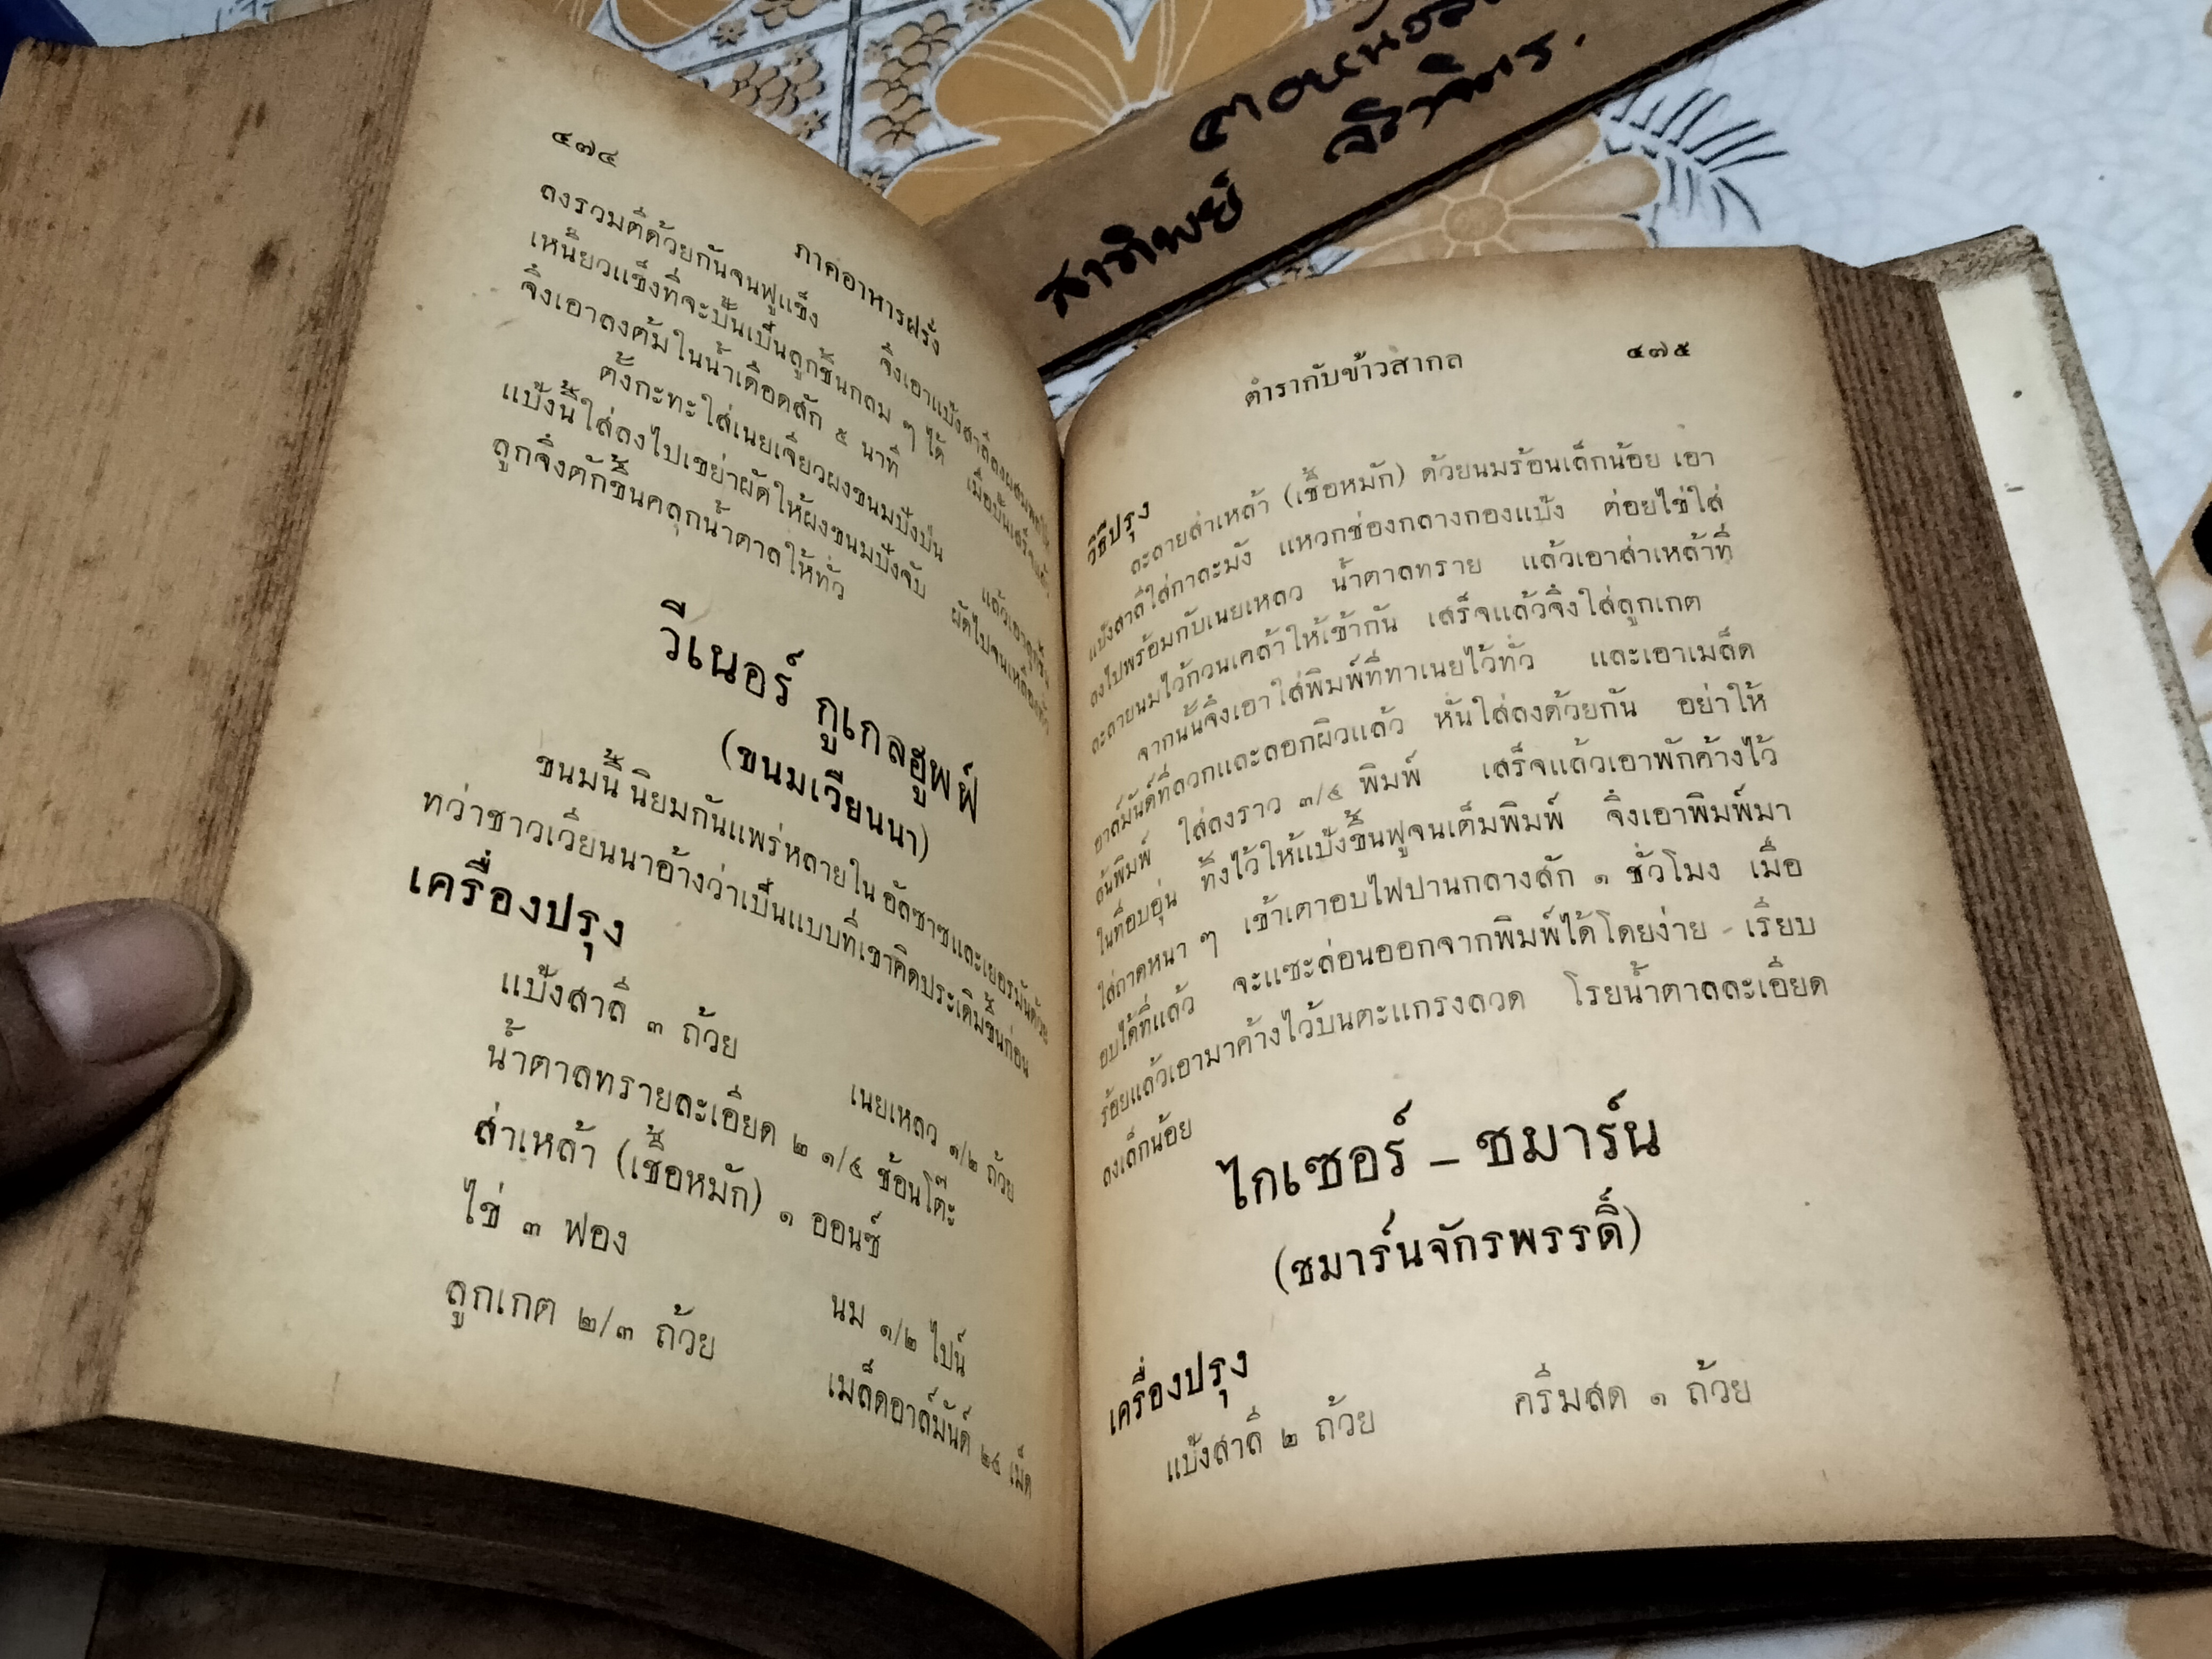 ๔๗๔
ภาคอาหารฝรั่ง
ลงรวมตีด้วยกันจนฟูแข็ง จึงเอาแป้งสาลีลงผสมพอให้
เหนียวแข็งที่จะปั้นเป็นลูกชิ้นกลม ๆ ได้ เมื่อปั้นเสร็จแล้ว
จึงเอาลงต้มในน้ำเดือดสัก ๕ นาที
ตั้งกะทะใส่เนยเจียวผงขนมปังป่น แล้วเอาลูกชิ้น
แป้งนี้ใส่ลงไปเขย่าผัดให้ผงขนมปังจับ ผัดไปจนเหลืองทั่ว
ลูกจึงตักขึ้นคลุกน้ำตาลให้ทั่ว
วีเนอร์ กูเกลฮูพฟ์
(ขนมเวียนนา)
ขนมนี้ นิยมกันแพร่หลายใน อัลซาซและเยอรมันด้วย
ทว่าชาวเวียนนาอ้างว่าเป็นแบบที่เขาคิดประเดิมขึ้นก่อน
เครื่องปรุง
แป้งสาลี ๓ ถ้วย เนยเหลว ๑/๒ ถ้วย
น้ำตาลทรายละเอียด ๒ ๑/๔ ช้อนโต๊ะ
ส่าเหล้า (เชื้อหมัก) ๑ ออนซ์
ไข่ ๓ ฟอง นม ๑/๒ ไปน์
ลูกเกต ๒/๓ ถ้วย เมล็ดอาล์มันด์ ๒๔ เม็ด
ตำรากับข้าวสากล ๔๗๕
วิธีปรุง
ละลายส่าเหล้า (เชื้อหมัก) ด้วยนมร้อนเล็กน้อย เอา
แป้งสาลีใส่กาละมัง แหวกช่องกลางกองแป้ง ต่อยไข่ใส่
ลงไปพร้อมกับเนยเหลว น้ำตาลทราย แล้วเอาส่าเหล้าที่
ละลายนมไว้กวนเคล้าให้เข้ากัน เสร็จแล้วจึงใส่ลูกเกต
จากนั้นจึงเอาใส่พิมพ์ที่ทาเนยไว้ทั่ว และเอาเมล็ด
อาล์มันด์ที่ลวกและลอกผิวแล้ว หั่นใส่ลงด้วยกัน อย่าให้
ล้นพิมพ์ ใส่ลงราว ๓/๔ พิมพ์ เสร็จแล้วเอาพักค้างไว้
ในที่อบอุ่น ทิ้งไว้ให้แป้งขึ้นฟูจนเต็มพิมพ์ จึงเอาพิมพ์มา
ใส่ถาดหนา ๆ เข้าเตาอบไฟปานกลางสัก ๑ ชั่วโมง เมื่อ
อบได้ที่แล้ว จะแซะล่อนออกจากพิมพ์ได้โดยง่าย เรียบ
ร้อยแล้วเอามาค้างไว้บนตะแกรงลวด โรยน้ำตาลละเอียด
ลงเล็กน้อย
ไกเซอร์ – ชมาร์น
(ชมาร์นจักรพรรดิ์)
เครื่องปรุง
แป้งสาลี ๒ ถ้วย ครีมสด ๑ ถ้วย
สาทิพย์